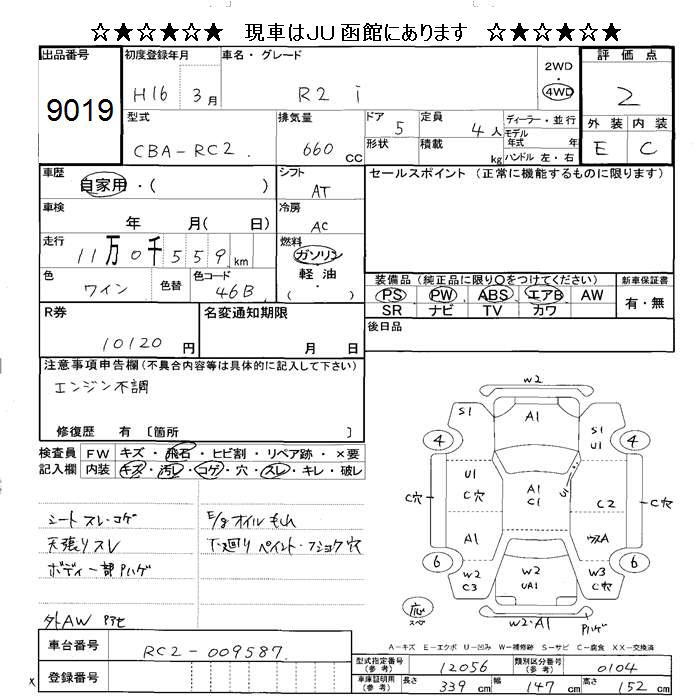 ☆★☆★☆★ 現車はJU函館にあります ☆★☆★☆★
出品番号
9019
初度登録年月
H16 3月
車名・グレード
R2 i
2WD
・
4WD
評価点
2
外装 内装
E C
型式
CBA-RC2
排気量
660 CC
ドア 5
形状
定員 4人
積載 kg
ディーラー・並行
モデル年式 年式
ハンドル 左・右
車歴
自家用・( )
シフト
AT
セールスポイント (正常に機能するものに限ります)
車検
年 月( 日)
冷房
AC
走行
11万0千559km
燃料
ガソリン
軽油
( )
色
ワイン
色替
色コード
46B
装備品 (純正品に限り○をつけてください)
PS PW ABS エアB AW
SR ナビ TV カワ
新車保証書
有・無
R券
10120円
名変通知期限
月 日
後日品
注意事項申告欄(不具合内容等は具体的に記入して下さい)
エンジン不調
修復歴 有 〔箇所 〕
検査員記入欄
FW キズ・飛石・ヒビ割・リペア跡・×要
内装 キズ・汚レ・コゲ・穴・スレ・キレ・破レ
シートスレ・コゲ
天張りスレ
ボディー部Pハゲ
E/gオイルもれ
下廻りペイント・フショク穴
外AW
w2
S1 A1 S1
U1
4 4
U1
C穴 A1
C1 U1 C2
C穴 C穴
A1 ウスA
6 6
w2
C3 w2
UA1 W3
C穴
w2・A1 Pハゲ
応
スペ
A-キズ E-エクボ U-凹み W-補修跡 S-サビ C-腐食 XX-交換済
車台番号
RC2-009587
登録番号
型式指定番号(参考)
12056
類別区分番号(参考)
0104
車庫証明用(参考)
長さ 339cm
幅 147cm
高さ 152cm
x